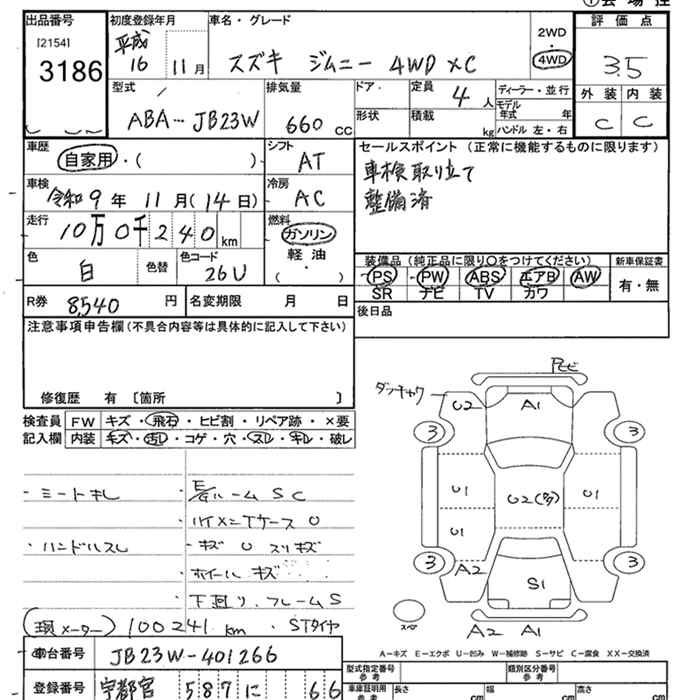 出品番号
[2154]
3186
初度登録年月
平成
16 11月
車名・グレード
スズキ ジムニー 4WD XC
2WD
4WD
評価点
3.5
外装 内装
C C
型式
ABA-JB23W
排気量
660 CC
ドア・
形状
定員
4人
積載
kg
ディーラー・並行
モデル年式 年
ハンドル 左・右
車歴
自家用・( )
シフト
AT
車検
令和9年11月(14日)
冷房
AC
走行
10万0千240km
燃料
ガソリン
軽油
( )
色
白
色替
色コード
26U
R券
8,540円
名変期限 月 日
セールスポイント(正常に機能するものに限ります)
車検取り立て
整備済
装備品(純正品に限り〇をつけてください)
PS PW ABS エアB AW
SR ナビ TV カワ
新車保証書
有・無
後日品
注意事項申告欄(不具合内容等は具体的に記入して下さい)
修復歴 有〔箇所 〕
検査員
記入欄
FW キズ・飛石・ヒビ割・リペア跡・×要
内装 キズ・汚レ・コゲ・穴・スレ・キレ・破レ
・ミートキレ
・ハンドルスレ
・E/gルームSC
・ハイメンTケースO
・キズ U スリキズ
ホイールキズ
下廻り、フレームS
(現メーター) 100241km ・STタイヤ
車台番号 JB23W-401266
登録番号 宇都宮 587 に 66
U2
A1
3
3
U1
U2
U1
U1
A2
S1
3
3
スペア
A2 A1
A-キズ E-エクボ U-凹み W-補修跡 S-サビ C-腐食 XX-交換済
型式指定番号
参考
類別区分番号
参考
車庫証明用
参考
長さ cm
幅 cm
高さ cm